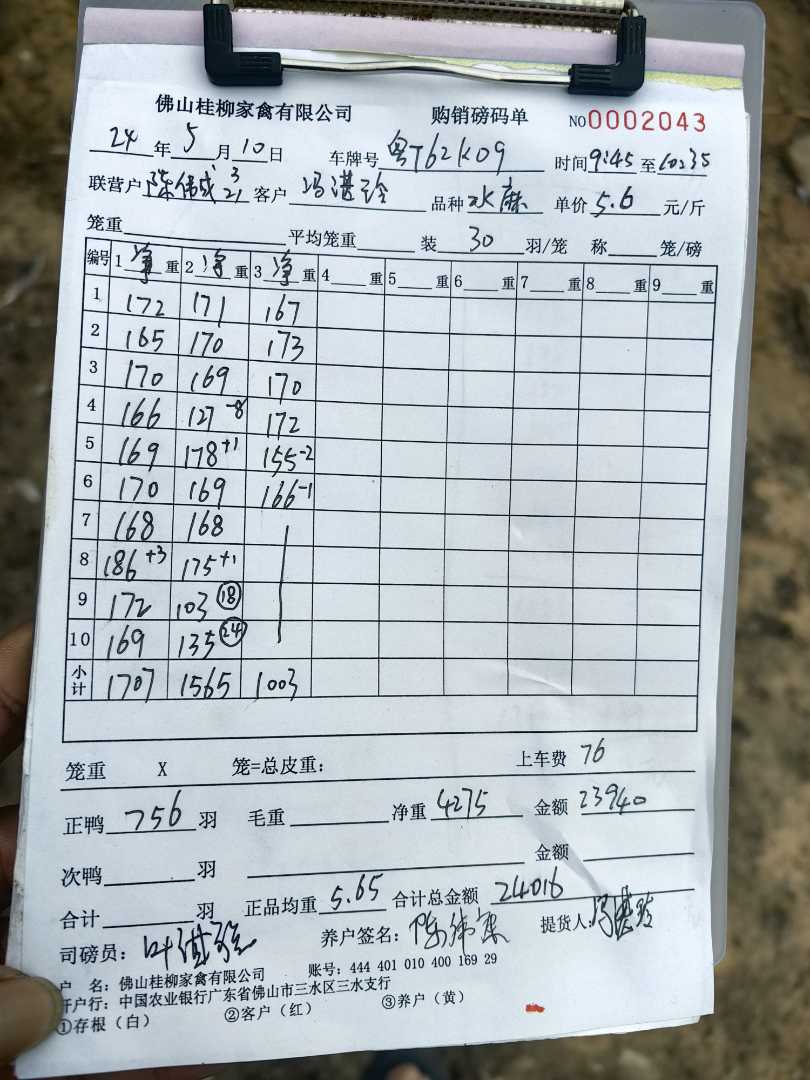 佛山桂柳家禽有限公司 购销磅码单 NO0002043
24年5月10日 车牌号 粤T62K09 时间9:45至10:35
联营户 陈伟成 3 21 客户 冯湛玲 品种 水麻 单价5.6元/斤
笼重 平均笼重 装 30 羽/笼 称 笼/磅
编号 1 净 重 2 净 重 3 净 重 4 重 5 重 6 重 7 重 8 重 9 重
1 172 171 167
2 165 170 173
3 170 169 170
4 166 127-8 172
5 169 178+1 155-2
6 170 169 166-1
7 168 168
8 186+3 175+1
9 172 103 18
10 169 135 24
小计 1707 1565 1003
笼重 X 笼=总皮重: 上车费 76
正鸭 756 羽 毛重 净重 4275 金额 23940
次鸭 羽 金额
合计 羽 正品均重 5.65 合计总金额 24016
司磅员: 叶湛 养户签名: 陈 提货人: 冯湛玲
户 名: 佛山桂柳家禽有限公司 账号: 444 401 010 400 169 29
开户行: 中国农业银行广东省佛山市三水区三水支行
①存根(白) ②客户(红) ③养户(黄)